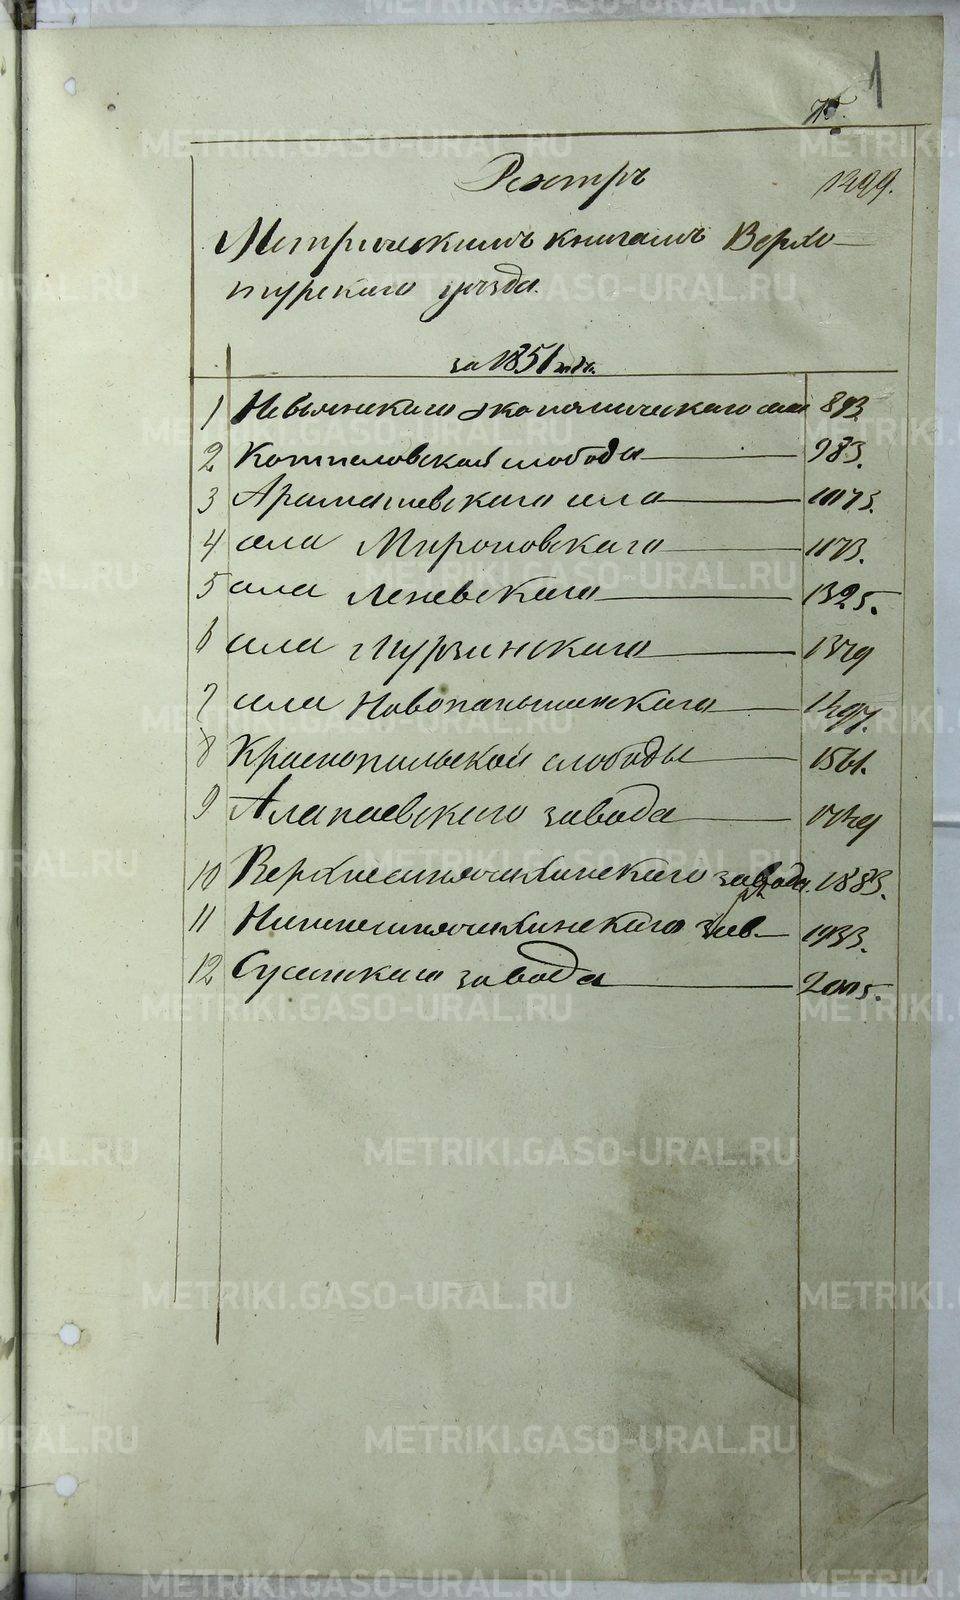 1
Реэстръ
1499.
Метрическимъ книгамъ Верхо-
турскаго уѣзда.
за 1851 годъ.
1 Невьянскаго экономическаго села 893.
2 Коптеловской слободы 983.
3 Арамашевскаго села 1073.
4 села Мироновскаго 1173.
5 села Леневскаго 1325.
6 села Мурзинскаго
7 села Новопаньшинскаго 1497.
8 Краснопольской слободы 1561.
9 Алапаевскаго завода
10 Верхнесинячихинскаго завода. 1883.
11 Нижнесинячихинскаго зав. 1933.
12 Сусанскаго завода 2005.
METRIKI.GASO-URAL.RU